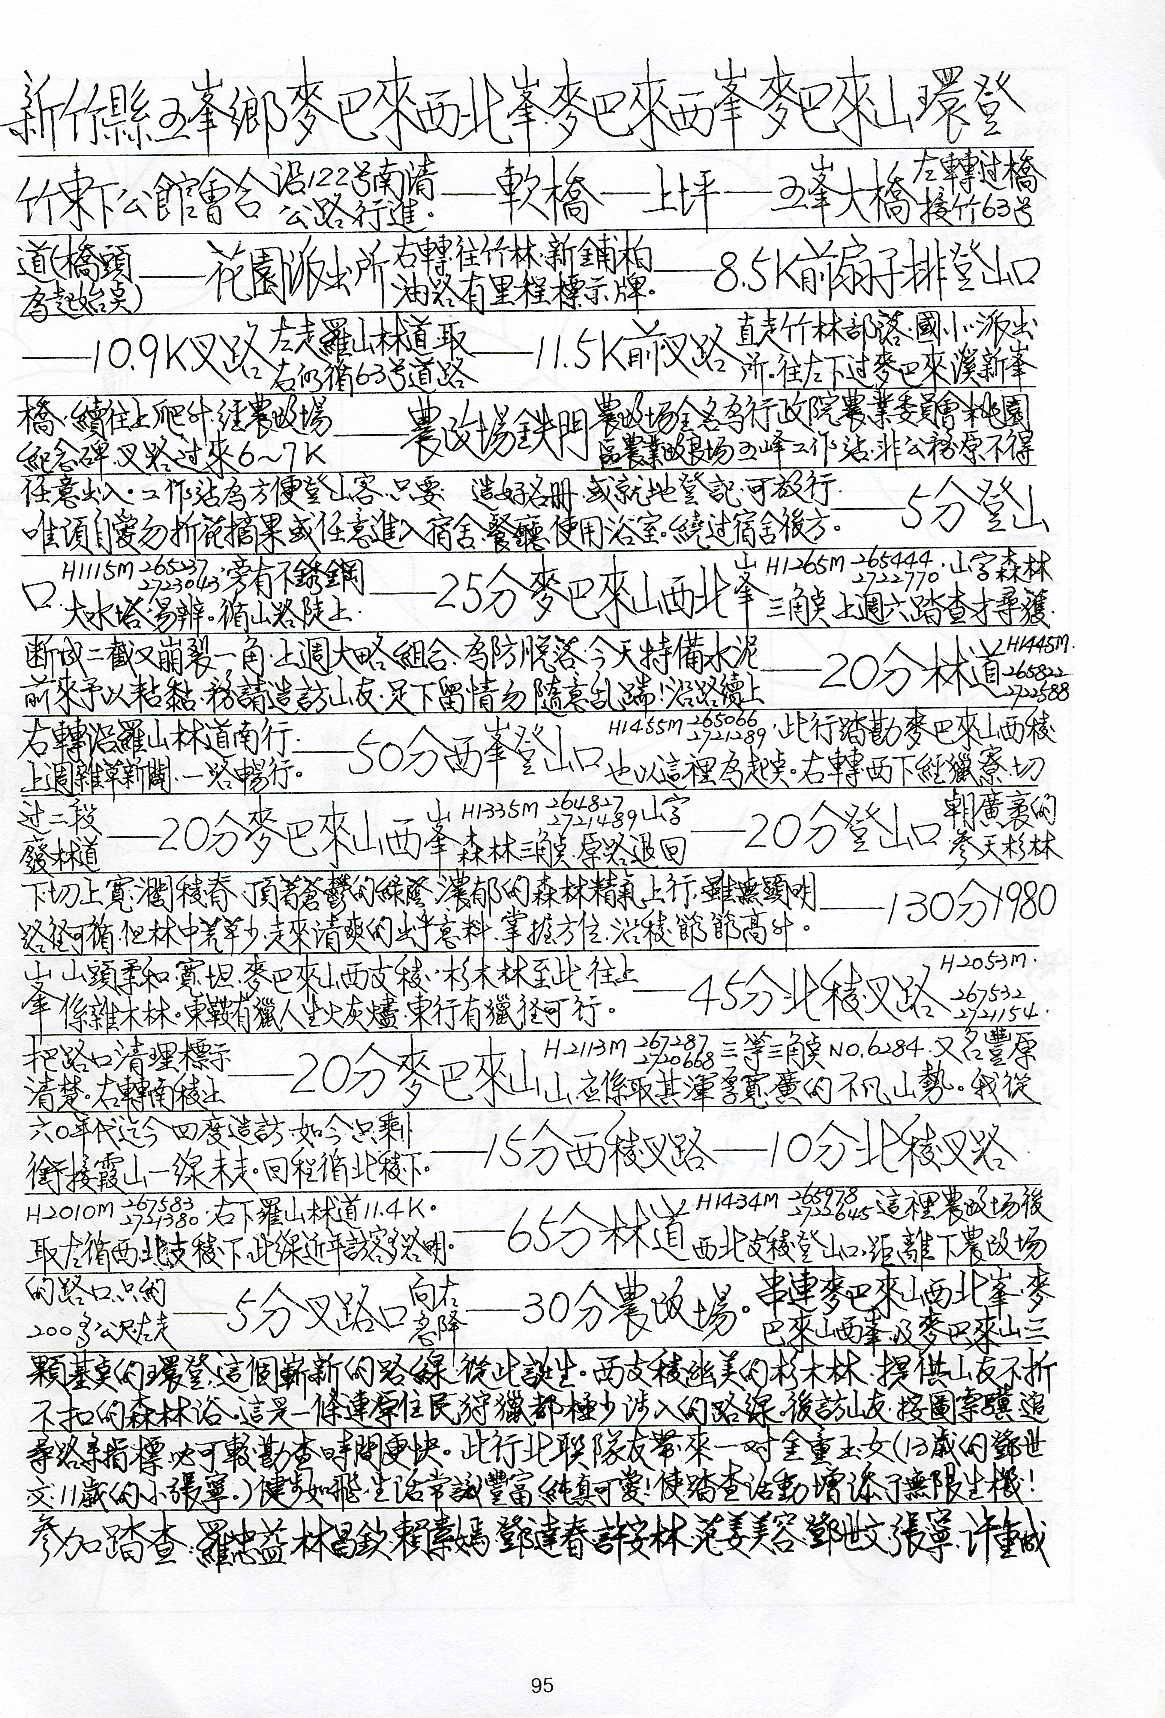 新竹縣五峯鄉麥巴來西北峯.麥巴來西峯.麥巴來山環登
竹東下公館會合 沿122号南清公路行進。——軟橋——上坪——五峯大橋 左轉过橋接竹63号
道(橋頭為起始点)——花園派出所 右轉往竹林.新鋪柏油路有里程標示牌。——8.5K前扇子排登山口
——10.9K叉路 左走羅山林道.取右仍循63号道路——11.5K前叉路 直走竹林部落.國小.派出所.往左下过麥巴來溪新峯
橋.續往上爬升.經農改場紀念碑.叉路过來6~7K——農改場鉄門 農改场全名為行政院農業委員會桃園區農業改良場五峰工作站.非公務原不得
任意出入.工作站為方便登山客.只要 造好名冊.或就地登記.可放行.唯須自愛勿折花摘果或任意進入宿舍.餐廳.使用浴室。繞过宿舍後方。——5分登山
口.H1115M 265237 2723043.旁有不銹鋼大水塔.易辨。循山路陡上.——25分麥巴來山西北峯 H1265M 265444 2722770.山字森林三角点上週六踏查才尋獲.
断成二截又崩裂一角.上週大略組合.為防脫落.今天特備水泥前來予以粘黏.務請造訪山友.足下留情勿隨意乱踹!沿路續上——20分林道 H1445M.265822 2722588
右轉沿羅山林道南行.上週雜草新闢.一路暢行。——50分西峯登山口 H1455M 265066 2721289.此行踏勘麥巴來山西稜也以這裡為起点。右轉西下經獵寮.切
过二段廢林道——20分麥巴來山西峯 H1335M 264827 2721489山字森林三角点.原路退回——20分登山口 朝廣袤的參天杉林
下切上寬濶稜脊.頂著蒼鬱的綠蔭.濃郁的森林精氣上行.雖無顯明路徑可循.但林中荖草少.走來清爽的出乎意料.掌握方位.沿稜節節高升。——130分1980
山峯 山頭柔和寬坦.麥巴來山西支稜.杉木林至此.往上係雜木林。東鞍有獵人生火灰燼.東行有獵徑可行。——45分北稜叉路 H2053M.267532 2721154.
把路口清理標示清楚。右轉南稜上——20分麥巴來山 H2113M 267287 2720668三等三角点NO.6284.又名豐原山.应係取其渾寬廣的不凡山勢。我從
六0年代迄今四度造訪.如今只剩銜接霞山一線未走。回程循北稜下。——15分西稜叉路——10分北稜叉路
H2010M 267583 2721380.右下羅山林道11.4K。取左循西北支稜下.此線近年訪客多.路明。——65分林道 H1434M 265978 2722645這裡農改场後西北支稜登山口.距離下農改场
的路口只約200多公尺.左走——5分叉路口 向右急降——30分農改場。串連麥巴來山西北峯.麥巴來山西峯.及麥巴來山三
顆基点的環登.這個嶄新的路線.從此誕生。西支稜幽美的杉木林.提供山友不折
不扣的森林浴。這是一條連原住民狩獵都極少涉入的路線.後訪山友.按圖索驥.追
尋路条指標.必可較勘查時間更快。此行北联隊友帶來一对金童玉女(13歲的鄧世
文.11歲的小張寧。)健步如飛.生活常識豐富.純真可愛!使踏查活動增添了無限生機!
參加踏查.羅忠益.林昌欽.賴素嫣.鄧達春.許安林.范姜美容.鄧世文.張寧.许重成
95